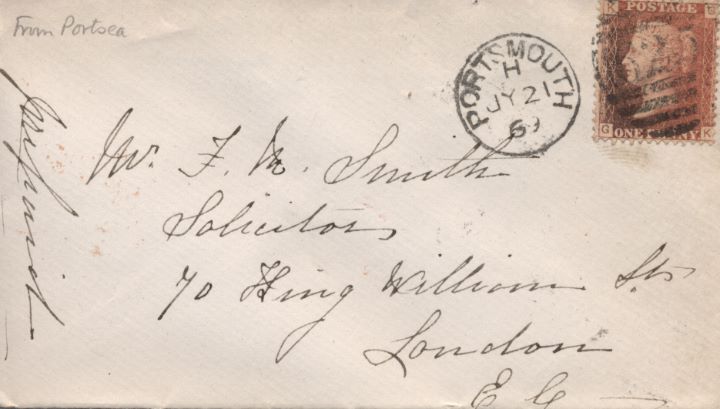 From Portsea
PORTSMOUTH
H
JY 21
69
K G
POSTAGE
G ONE PENNY K
Mr. F. N. Smith
Solicitors
70 King William St.
London
E C